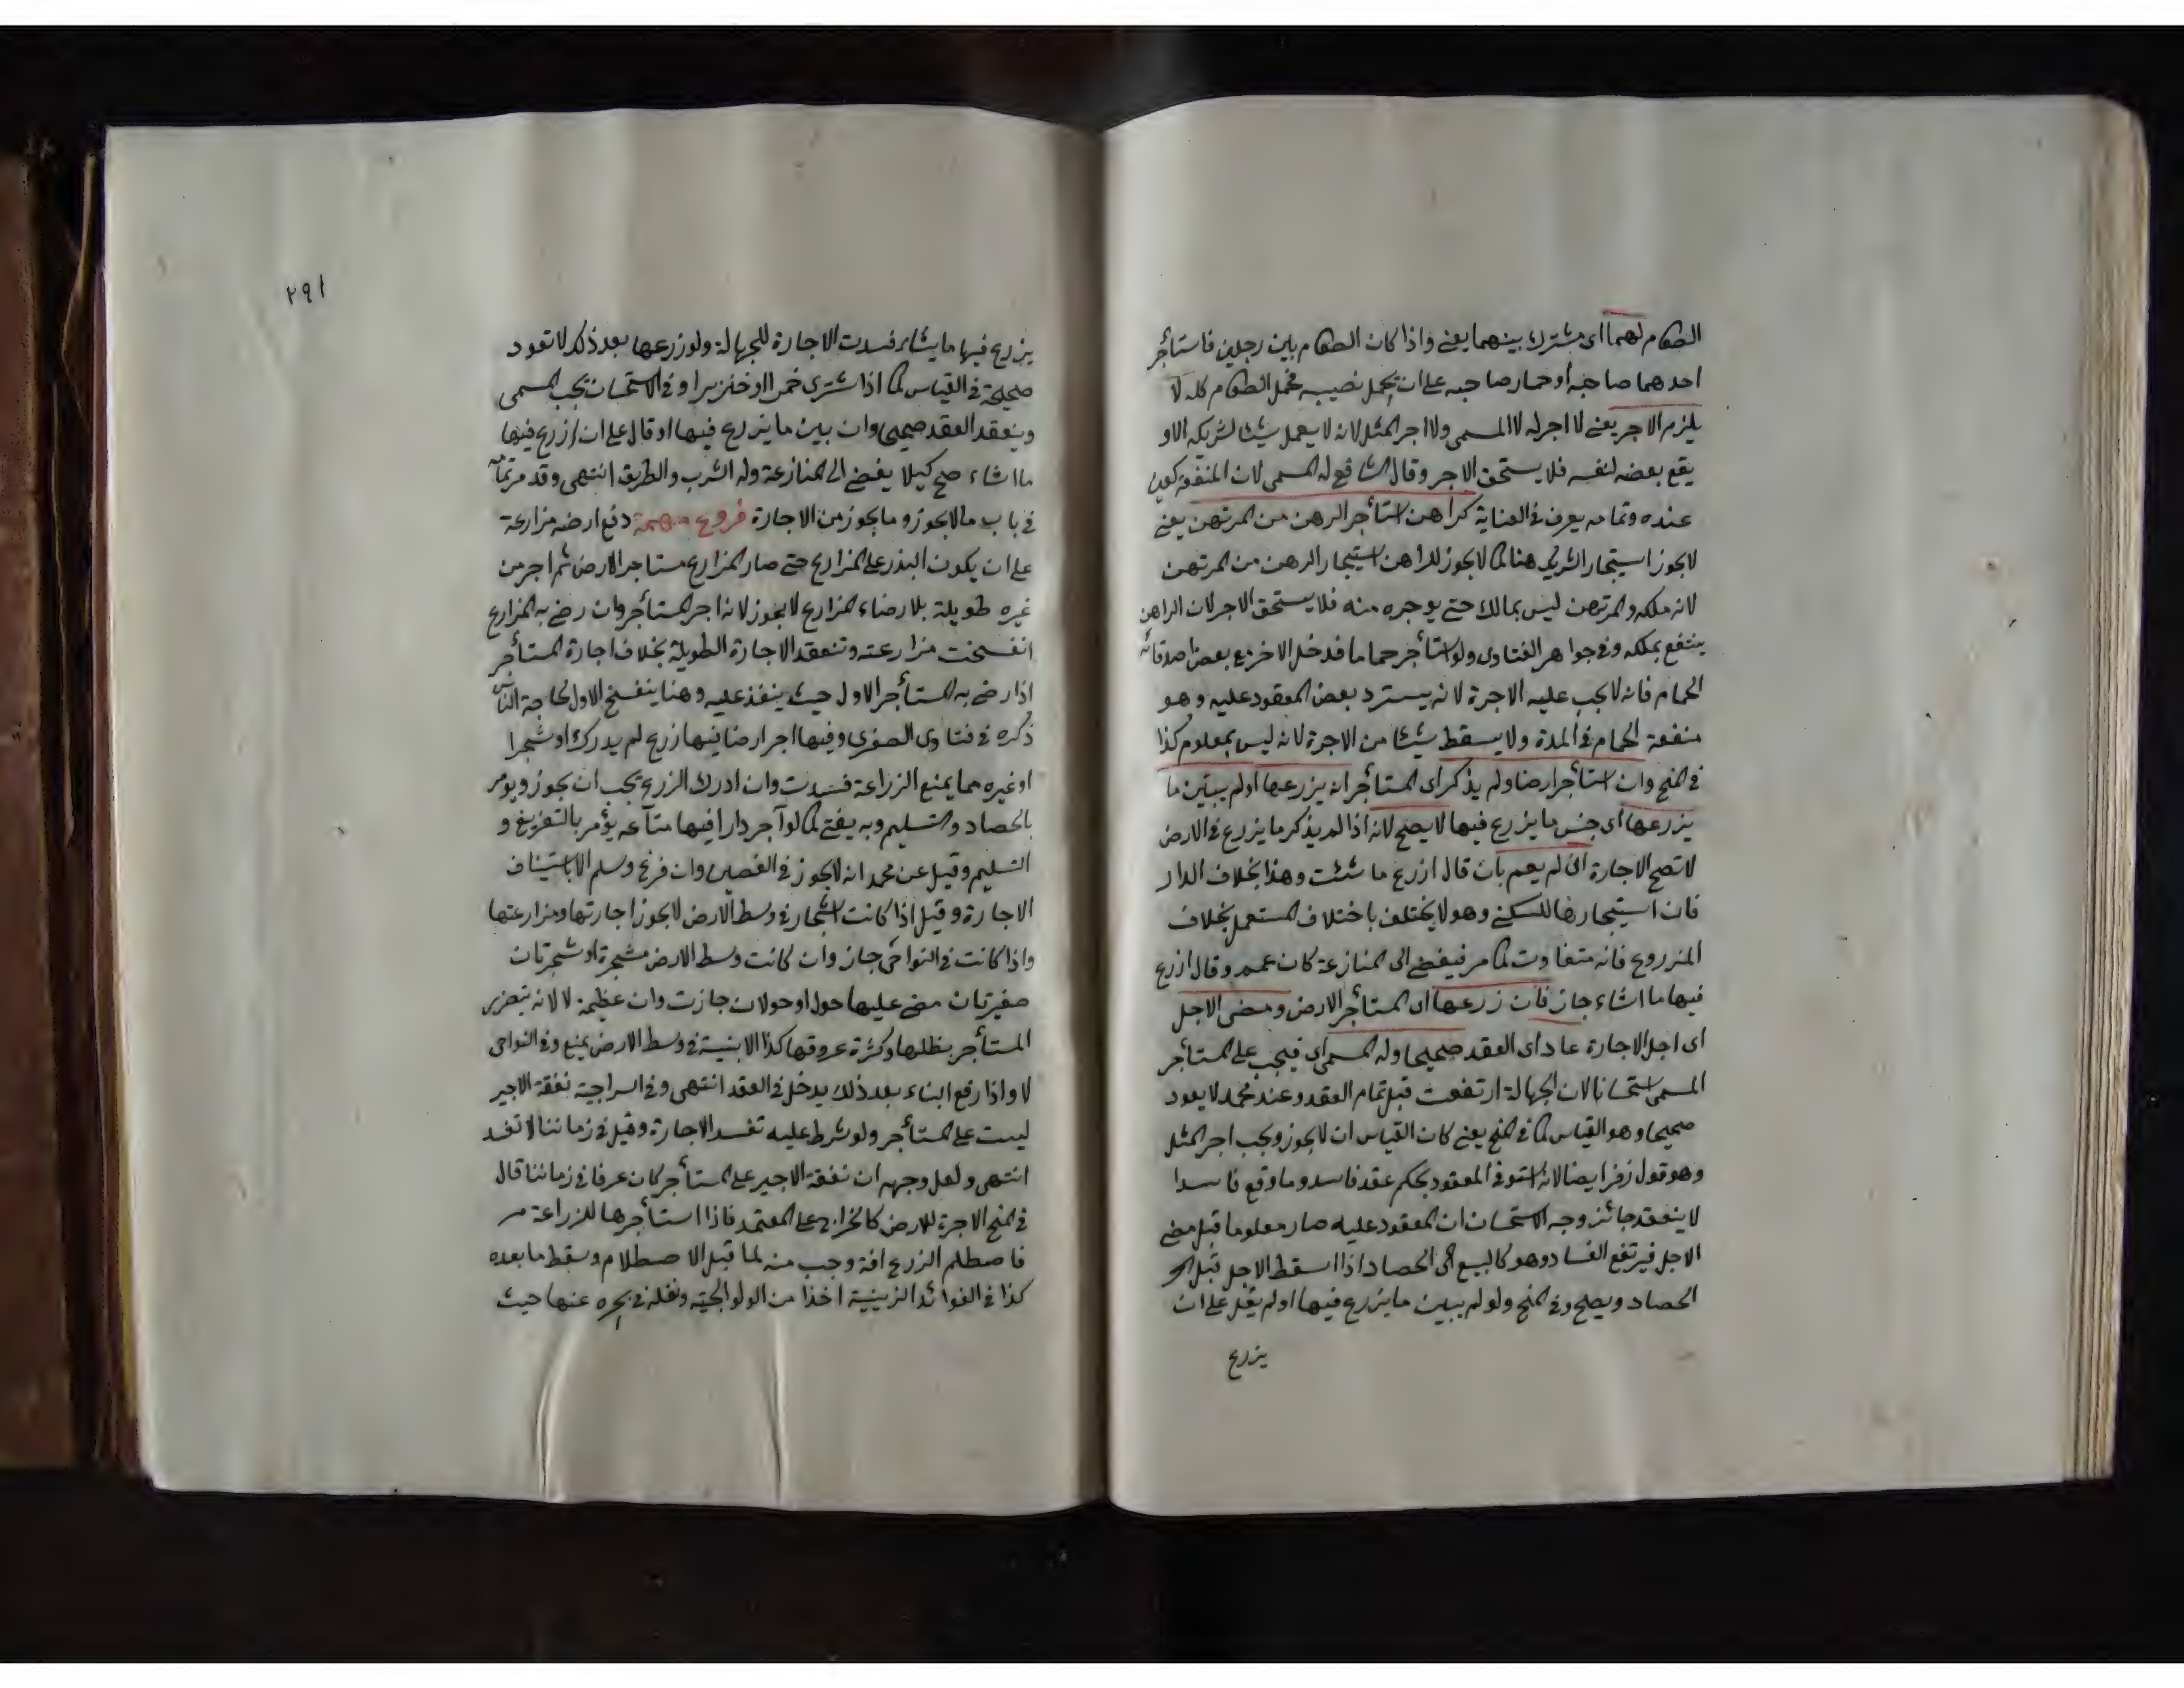 الطعام لهما اى مشترك بينهما يعنى واذا كان الطعام بين رجلين فاستأجر
احدهما صاحبه او حمار صاحبه على ان يحمل نصيبه فحمل الطعام كله لا
يلزم الاجر يعنى لا اجر له لا المسمى ولا اجر المثل لانه لا يعمل شيئا لشريكه الا و
يقع بعضه لنفسه فلا يستحق الاجر وقال الشافعى له المسمى لان المنفعة كعين
عنده وتمامه يعرف فى العناية كراهن استأجر الرهن من المرتهن يعنى
لا يجوز استيجار الشريك هنا كما لا يجوز للراهن استيجار الرهن من المرتهن
لانه ملكه والمرتهن ليس بمالك حتى يوجره منه فلا يستحق الاجر لان الراهن
ينتفع بملكه وفى جواهر الفتاوى ولو استأجر حماما فدخل الاخر مع بعض اصدقائه
الحمام فانه لا يجب عليه الاجرة لانه يسترد بعض المعقود عليه وهو
منفعة الحمام فى المدة ولا يسقط شيئا من الاجرة لانه ليس بمعلوم كذا
فى المنح وان استأجر ارضا ولم يذكر اى المستأجر انه يزرعها او لم يبين ما
يزرعها اى جنس ما يزرع فيها لا يصح لانه اذا لم يذكر ما يزرع فى الارض
لا تصح الاجارة اى لم يعمم بان قال ازرع ما شئت وهذا بخلاف الدار
فان استيجارها للسكنى وهو لا يختلف باختلاف المستعمل بخلاف
المزروع فانه متفاوت كما مر فيفضى الى المنازعة كان عمم وقال ازرع
فيها ما اشاء جاز فان زرعها اى المستأجر الارض ومضى الاجل
اى اجل الاجارة عاد اى العقد صحيحا وله المسمى اى فيجب على المستأجر
المسمى استحسانا لان الجهالة ارتفعت قبل تمام العقد وعند محمد لا يعود
صحيحا وهو القياس كما فى المنح يعنى كان القياس ان لا يجوز ويجب اجر المثل
وهو قول زفر ايضا لانه استوفى المعقود بحكم عقد فاسد وما وقع فاسدا
لا ينعقد جائز وجه الاستحسان ان المعقود عليه صار معلوما قبل مضى
الاجل فيرتفع الفساد وهو كالبيع الى الحصاد اذا اسقط الاجل قبل
الحصاد ويصلح وفى المنح ولو لم يبين ما يزرع فيها او لم يقل على ان
يزرع
٢٩١
يزرع فيها ما يشاء فسدت الاجارة للجهالة ولو زرعها بعد ذلك لا تعود
صحيحة فى القياس كما اذا اشترى خمرا او خنزيرا وفى الاستحسان يجب المسمى
وينعقد العقد صحيحا وان بين ما يزرع فيها او قال على ان ازرع فيها
ما اشاء صح كيلا يفضى الى المنازعة وله الشرب والطريق انتهى وقد مر تمامه
فى باب ما لا يجوز وما يجوز من الاجارة فروع مهمة دفع ارضه مزارعة
على ان يكون البذر على المزارع حتى صار المزارع مستاجر الارض ثم اجر من
غيره طويلة بلا رضاء المزارع لا يجوز لانه اجر المستأجر وان رضى به المزارع
انفسخت مزارعته وتنعقد الاجارة الطويلة بخلاف اجارة المستأجر
اذا رضى به المستأجر الاول حيث ينفذ عليه وهنا ينفسخ الاول لحاجة الناس
ذكره فى فتاوى الصغرى وفيها اجر ارضا فيها زرع لم يدرك او شجرا
او غيره مما يمنع الزراعة فسدت وان ادرك الزرع يجب ان يجوز ويومر
بالحصاد والتسليم وبه يفتى كما لو آجر دارا فيها متاعه يؤمر بالتفريغ و
التسليم وقيل عن محمد انه لا يجوز فى الفصلين وان فرغ وسلم الا باستيناف
الاجارة وقيل اذا كانت اشجار فى وسط الارض لا يجوز اجارتها ومزارعتها
واذا كانت فى النواحى جاز وان كانت وسط الارض شجرة او شجرتان
صغيرتان مضى عليها حول او حولان جازت وان عظيمة لا لانه يتضرر
المستأجر بظلها وكثرة عروقها كذا الابنية فى وسط الارض يمنع وفى النواحى
لا واذا رفع البناء بعد ذلك يدخل فى العقد انتهى وفى السراجية نفقة الاجير
ليست على المستأجر ولو شرط عليه تفسد الاجارة وقيل فى زماننا لا تفسد
انتهى ولعل وجهه ان نفقة الاجير على المستأجر كان عرفا فى زماننا قال
فى المنح الاجرة للارض كالخراج على المعتمد فاذا استأجرها للزراعة
فاصطلم الزرع افة وجب منه لما قبل الاصطلام وسقط ما بعده
كذا فى الفوائد الزينية اخذا من الولوالجية ونقله فى بحره عنها حيث